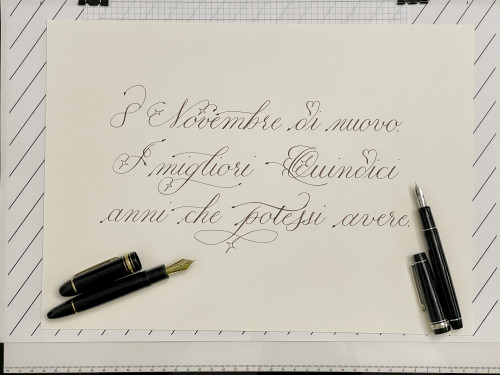 8 Novembre di nuovo.
I migliori Quindici
anni che potessi avere.